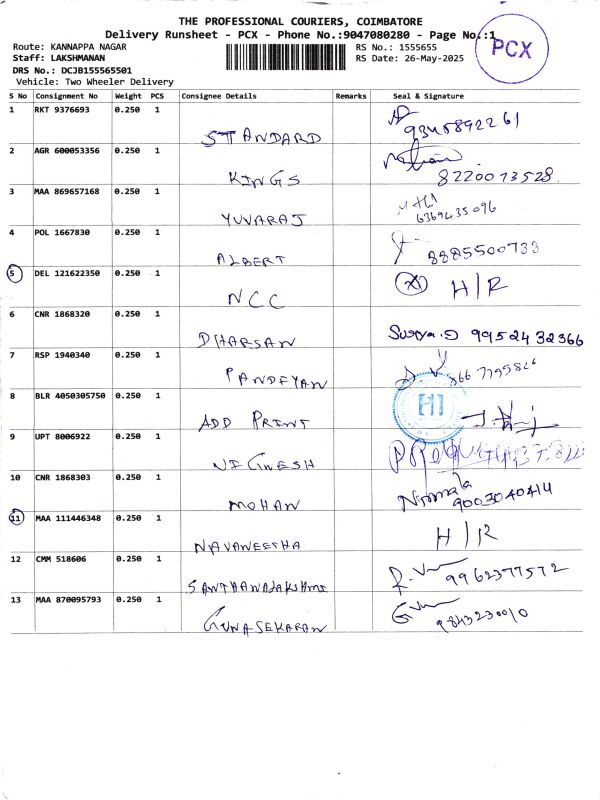 THE PROFESSIONAL COURIERS, COIMBATORE
Delivery Runsheet - PCX - Phone No.:9047080280 - Page No.:1
PCX
Route: KANNAPPA NAGAR
RS No.: 1555655
Staff: LAKSHMANAN
RS Date: 26-May-2025
DRS No.: DCJB155565501
Vehicle: Two Wheeler Delivery
S No Consignment No Weight PCS Consignee Details Remarks Seal & Signature
1 RKT 9376693 0.250 1
STTANDARD
2 AGR 600053356 0.250 1
KINGS 8220073528
3 MAA 869657168 0.250 1
YUVARAJ 6369435096
4 POL 1667830 0.250 1
ALBERT 8885500733
5 DEL 121622350 0.250 1
NCC H/R
6 CNR 1868320 0.250 1
DHARSAN Surya.D 9952432366
7 RSP 1940340 0.250 1
PANDEYAN
8 BLR 4050305750 0.250 1
ADD PRINT
9 UPT 8006922 0.250 1
VIGNESH
10 CNR 1868303 0.250 1
MOHAN Nirmala 9003040414
11 MAA 111446348 0.250 1
NAVANEETHA H/R
12 CMM 518606 0.250 1
SANTHANALAKSHMI 9962377572
13 MAA 870095793 0.250 1
GUNASEKARAN 9843230010